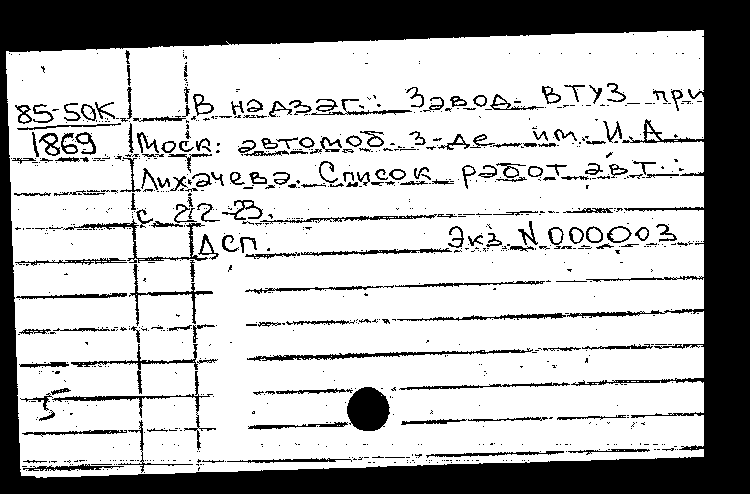 85-50К
1869
В надзаг.: Завод-ВТУЗ при
Моск. автомоб. з-де им. И.А.
Лихачева. Список работ авт.:
с. 22-23.
ДСП. Экз. N 000003
5